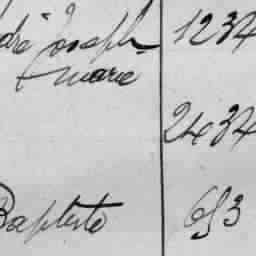 dré Joseph 1234
marie
2434
Baptiste 653